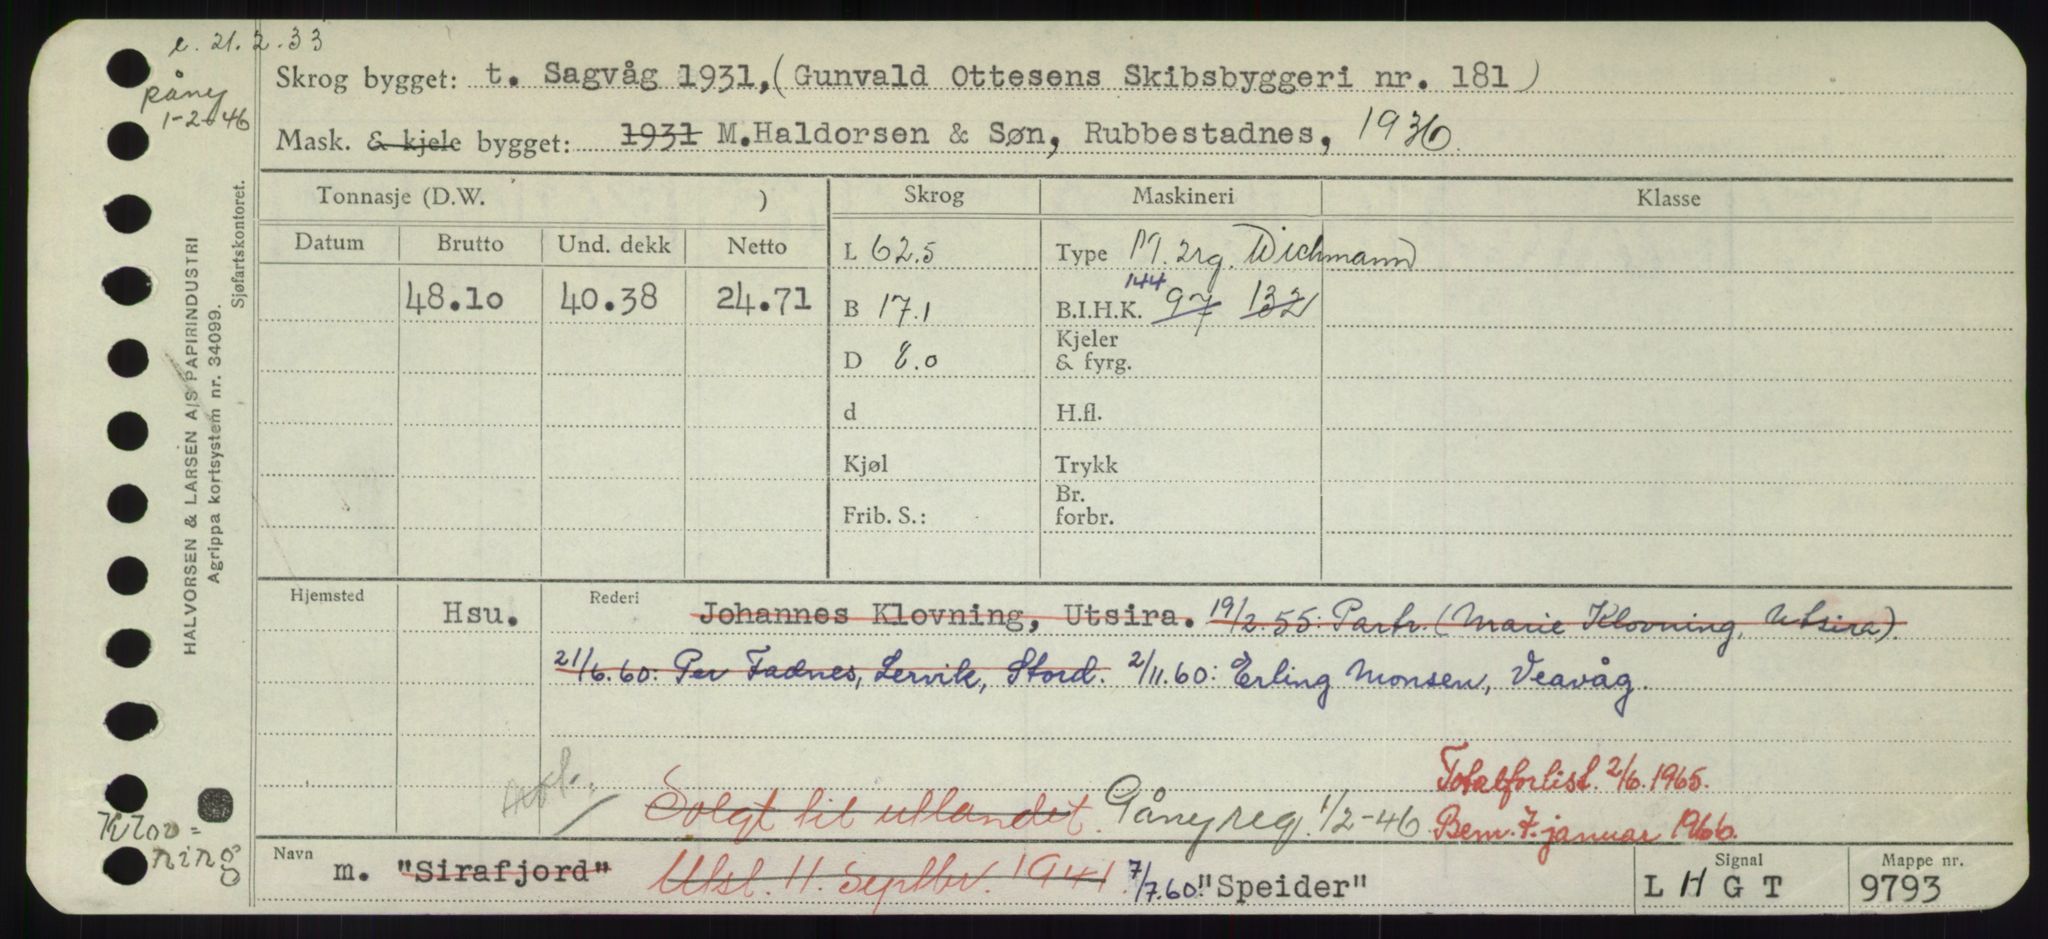 e. 21.2.33
Skrog bygget: t. Sagvåg 1931, (Gunvald Ottesens Skibsbyggeri nr. 181)
påny
1-2-46
Mask. & kjele bygget: 1931 M.Haldorsen & Søn, Rubbestadnes, 1936
HALVORSEN & LARSEN A/S PAPIRINDUSTRI
Agrippa kortsystem nr. 34099.
Sjøfartskontoret.
Tonnasje (D.W. ) Skrog Maskineri Klasse
Datum Brutto Und. dekk Netto L 62.5 Type M. 2rg. Wichmann
48.10 40.38 24.71 B 17.1 B.I.H.K. 144 97 132
D 8.0 Kjeler
& fyrg.
d H.fl.
Kjøl Trykk
Frib. S.: Br.
forbr.
Hjemsted Hsu. Rederi Johannes Klovning, Utsira. 19/2.55: Partr. (Marie Klovning, Utsira).
21/6.60: Per Fadnes, Lervik, Stord. 2/11.60: Erling Monsen, Veavåg.
Totalforlist 2/6.1965.
Solgt til utlandet. Påny reg. 1/2-46 Bem. 7. januar 1966.
Klov=
ning
Navn m. "Sirafjord" Utsl. 11. Septbr. 1941. 7/7.60: "Speider" Signal L H G T Mappe nr. 9793